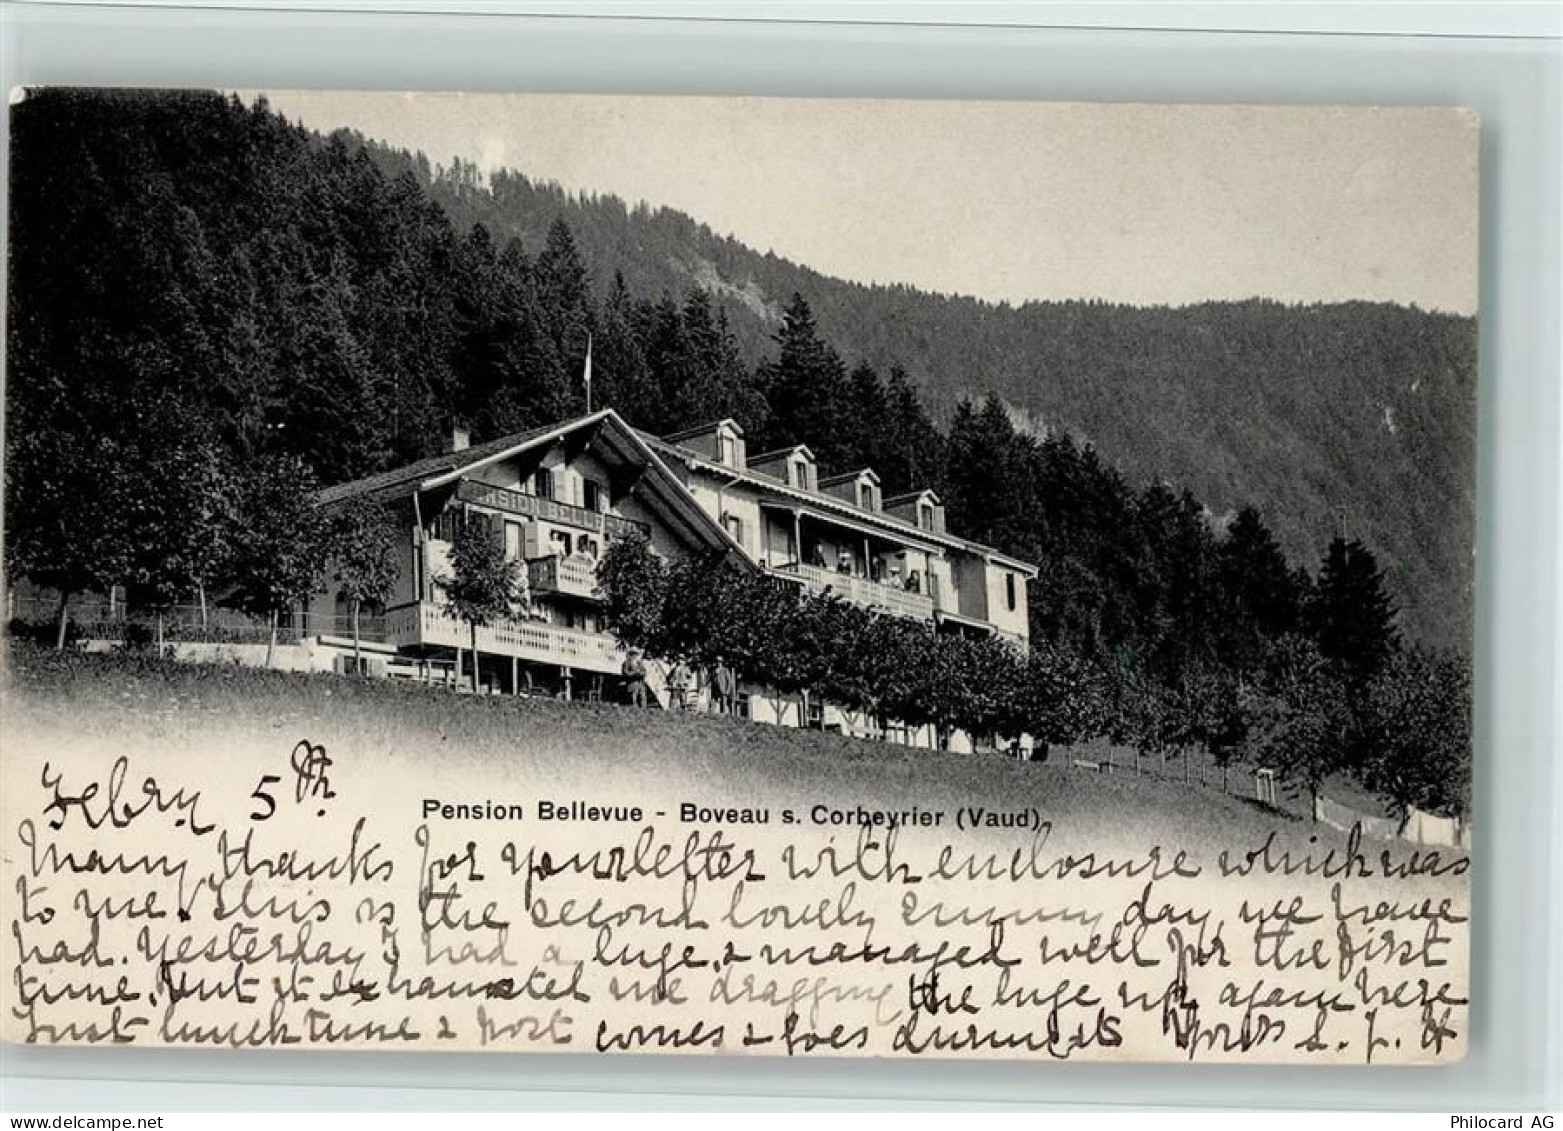 Febry 5th
Pension Bellevue - Boveau s. Corbeyrier (Vaud)
Many thanks for your letter with enclosure which was
to me. This is the second lovely sunny day, we have
had. Yesterday I had a luge, & managed well for the first
time, but it exhausted me dragging the luge up again here
Just lunch time & post comes & goes during its Yours L. J. H
www.delcampe.net
Philocard AG